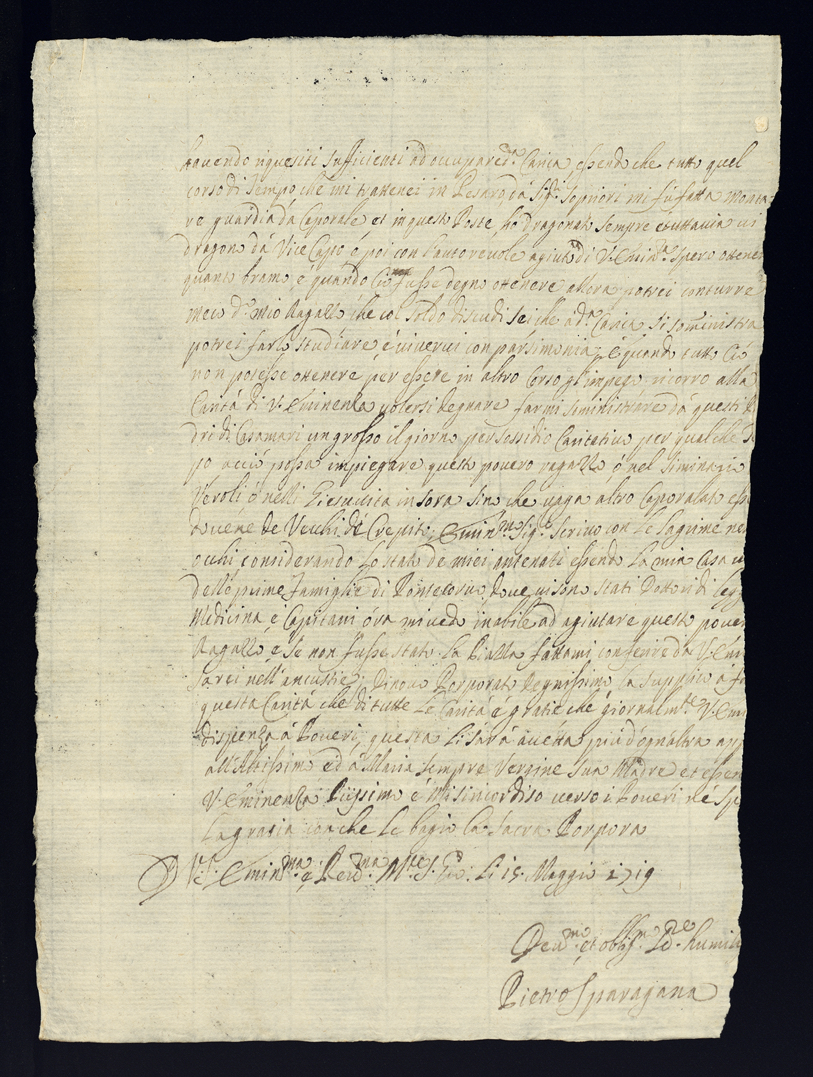 havendo riquesiti sufficienti ad occupare d.ª Carica, essendo che tutto quel
corso di tempo che mi trattenei in Pesaro da Sig.ri sopriori mi fù fatta monta
re guardia da Caporale et in questo Poste, ho dragonato sempre e tuttavia vi
dragono da Vice Capo e poi con l'autorevole agiuto di V. Emin.za spero ottener
quanto bramo, e quando Ciò fusse degno ottenere allora potrei condurre
meco d.º mio Ragazzo che col soldo di scudi sei che a d.ª Carica si soministra
potrei farlo studiare, e vivervi con parsimonia, e quando tutto Ciò
non potesse ottenere per essere in altro Corso gl'impegi ricorro alla
Carità di V. Eminenza volersi degnare farmi siministrare da questi P
dri di Casamari un grosso il giorno per sessidio Caritativo per qualche te
po acciò possa impiegare questo povero ragazzo ó nel Siminario
Veroli ó nelli Giesuita in Sora sino che vaga altro Caporalato esse
dovene de Vecchi de Crepiti, Emin.mo Sig.re Scrivo con le lagrime ne
ochi considerando lo stato de miei antenati essendo la mia Casa u
delle prime famiglie di Pontecorvo, dove vi sono stati Dottori di legg
Medicina e Capitani óra mi vedo inabile ad agiutare questo pover
Ragazzo, e se non fusse stato la Piazza fattami conferire da V. Emi
sarei nell'ancustie; Dinovo Porporato degnissimo la supplico á fa
questa Carità che di tutte le Carità e gratie che giornalm.te V. Emi
dispenza á Poveri, questa li sarà áccetta più d'ogn'altra app
all'Altissimo ed á Maria sempre Vergine sua Madre et essen
V. Eminenza Piissimo e Misiricordiso verso i Poveri ne sp
la grazia con che le bagio la Sacra Porpora
D V.ª Emin.ma e Rev.ma Li 15. Maggio 1719
Dev.mo et obblig.mo humili
Pietro Sparagana